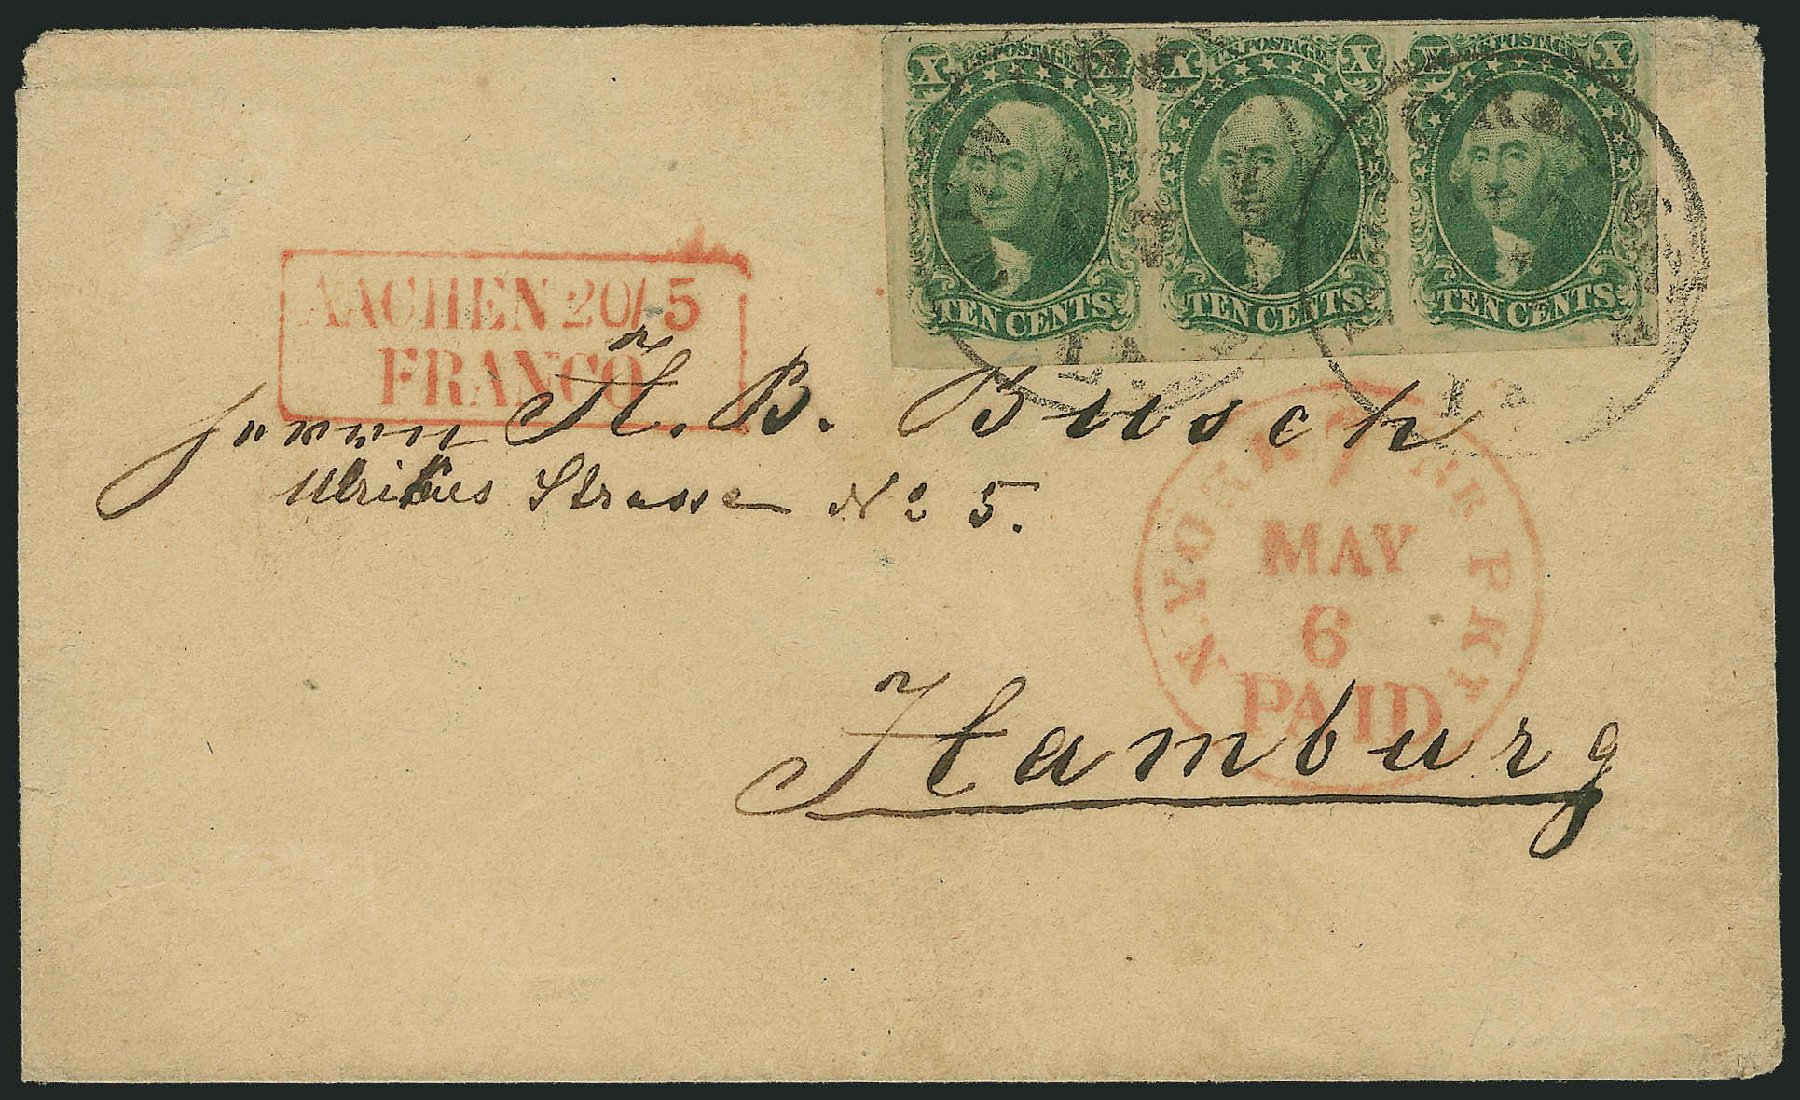 X U.S. POSTAGE X X U.S. POSTAGE X X U.S. POSTAGE X
TEN CENTS TEN CENTS TEN CENTS
AACHEN 20/5
FRANCO
Herrn H. B. Busch
Ulrikus Strasse No 5.
N. YORK 7 PKT
MAY
6
PAID
Hamburg